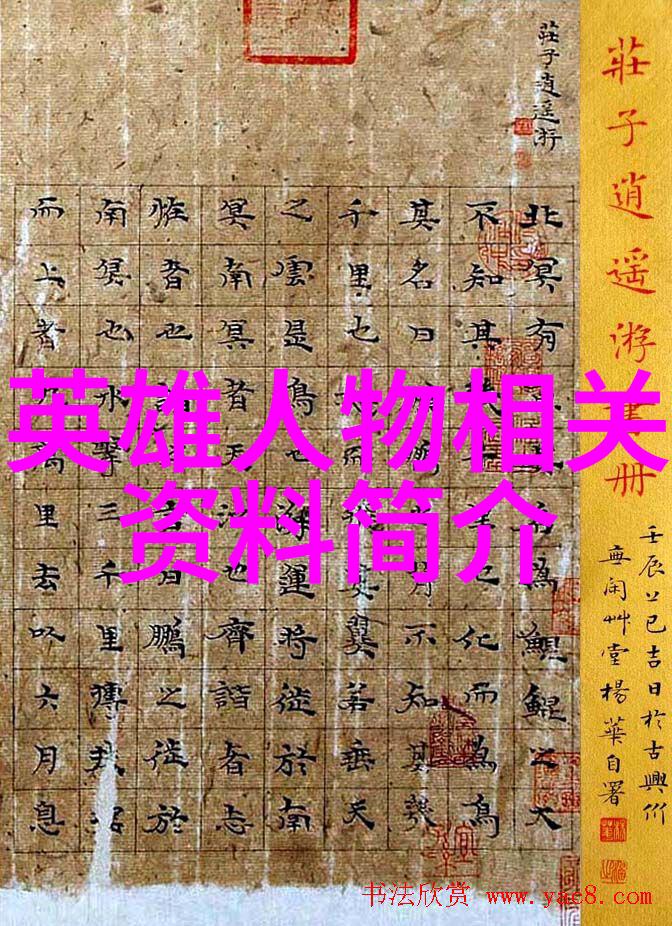 英雄人物相关
资料简介
莊子逍遥游書册
壬辰上巳吉日於古興
無闲艸堂楊華自署
莊子逍遥游
北冥有名為鯤鯤之大
不知其里也化而為鳥
其名曰鵬背不知其幾
千里也而飛其翼若垂天
之雲是鳥也海運時徙於南
冥南冥者天池也齊諧者志
恠者也諧言曰鵬之徙於
南冥也水擊三千里摶
而上者萬里去以六月息
书法欣赏 www.yac8.com